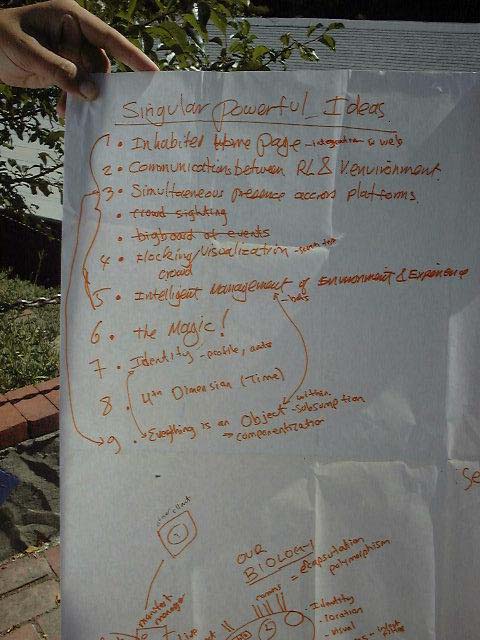 Singular Powerful Ideas
1 • Inhabited Home Page - integration w web
2 • Communications between RL & V.environment
3 • Simultaneous presence accross platforms
• crowd sighting
• bigboard of events
4 • Flocking/Visualization
crowd
5 • Intelligent Management of Environment & Experience
- bots
6 • the Magic!
7 • Identity - profile,
8 • 4th Dimension (Time)
within
9 • Everything is an Object - subsumption
→ componentization
client
OUR
BIOLOGY
= encapsulation
polymorphism
rooms
manager
• Identity
• location
• visual